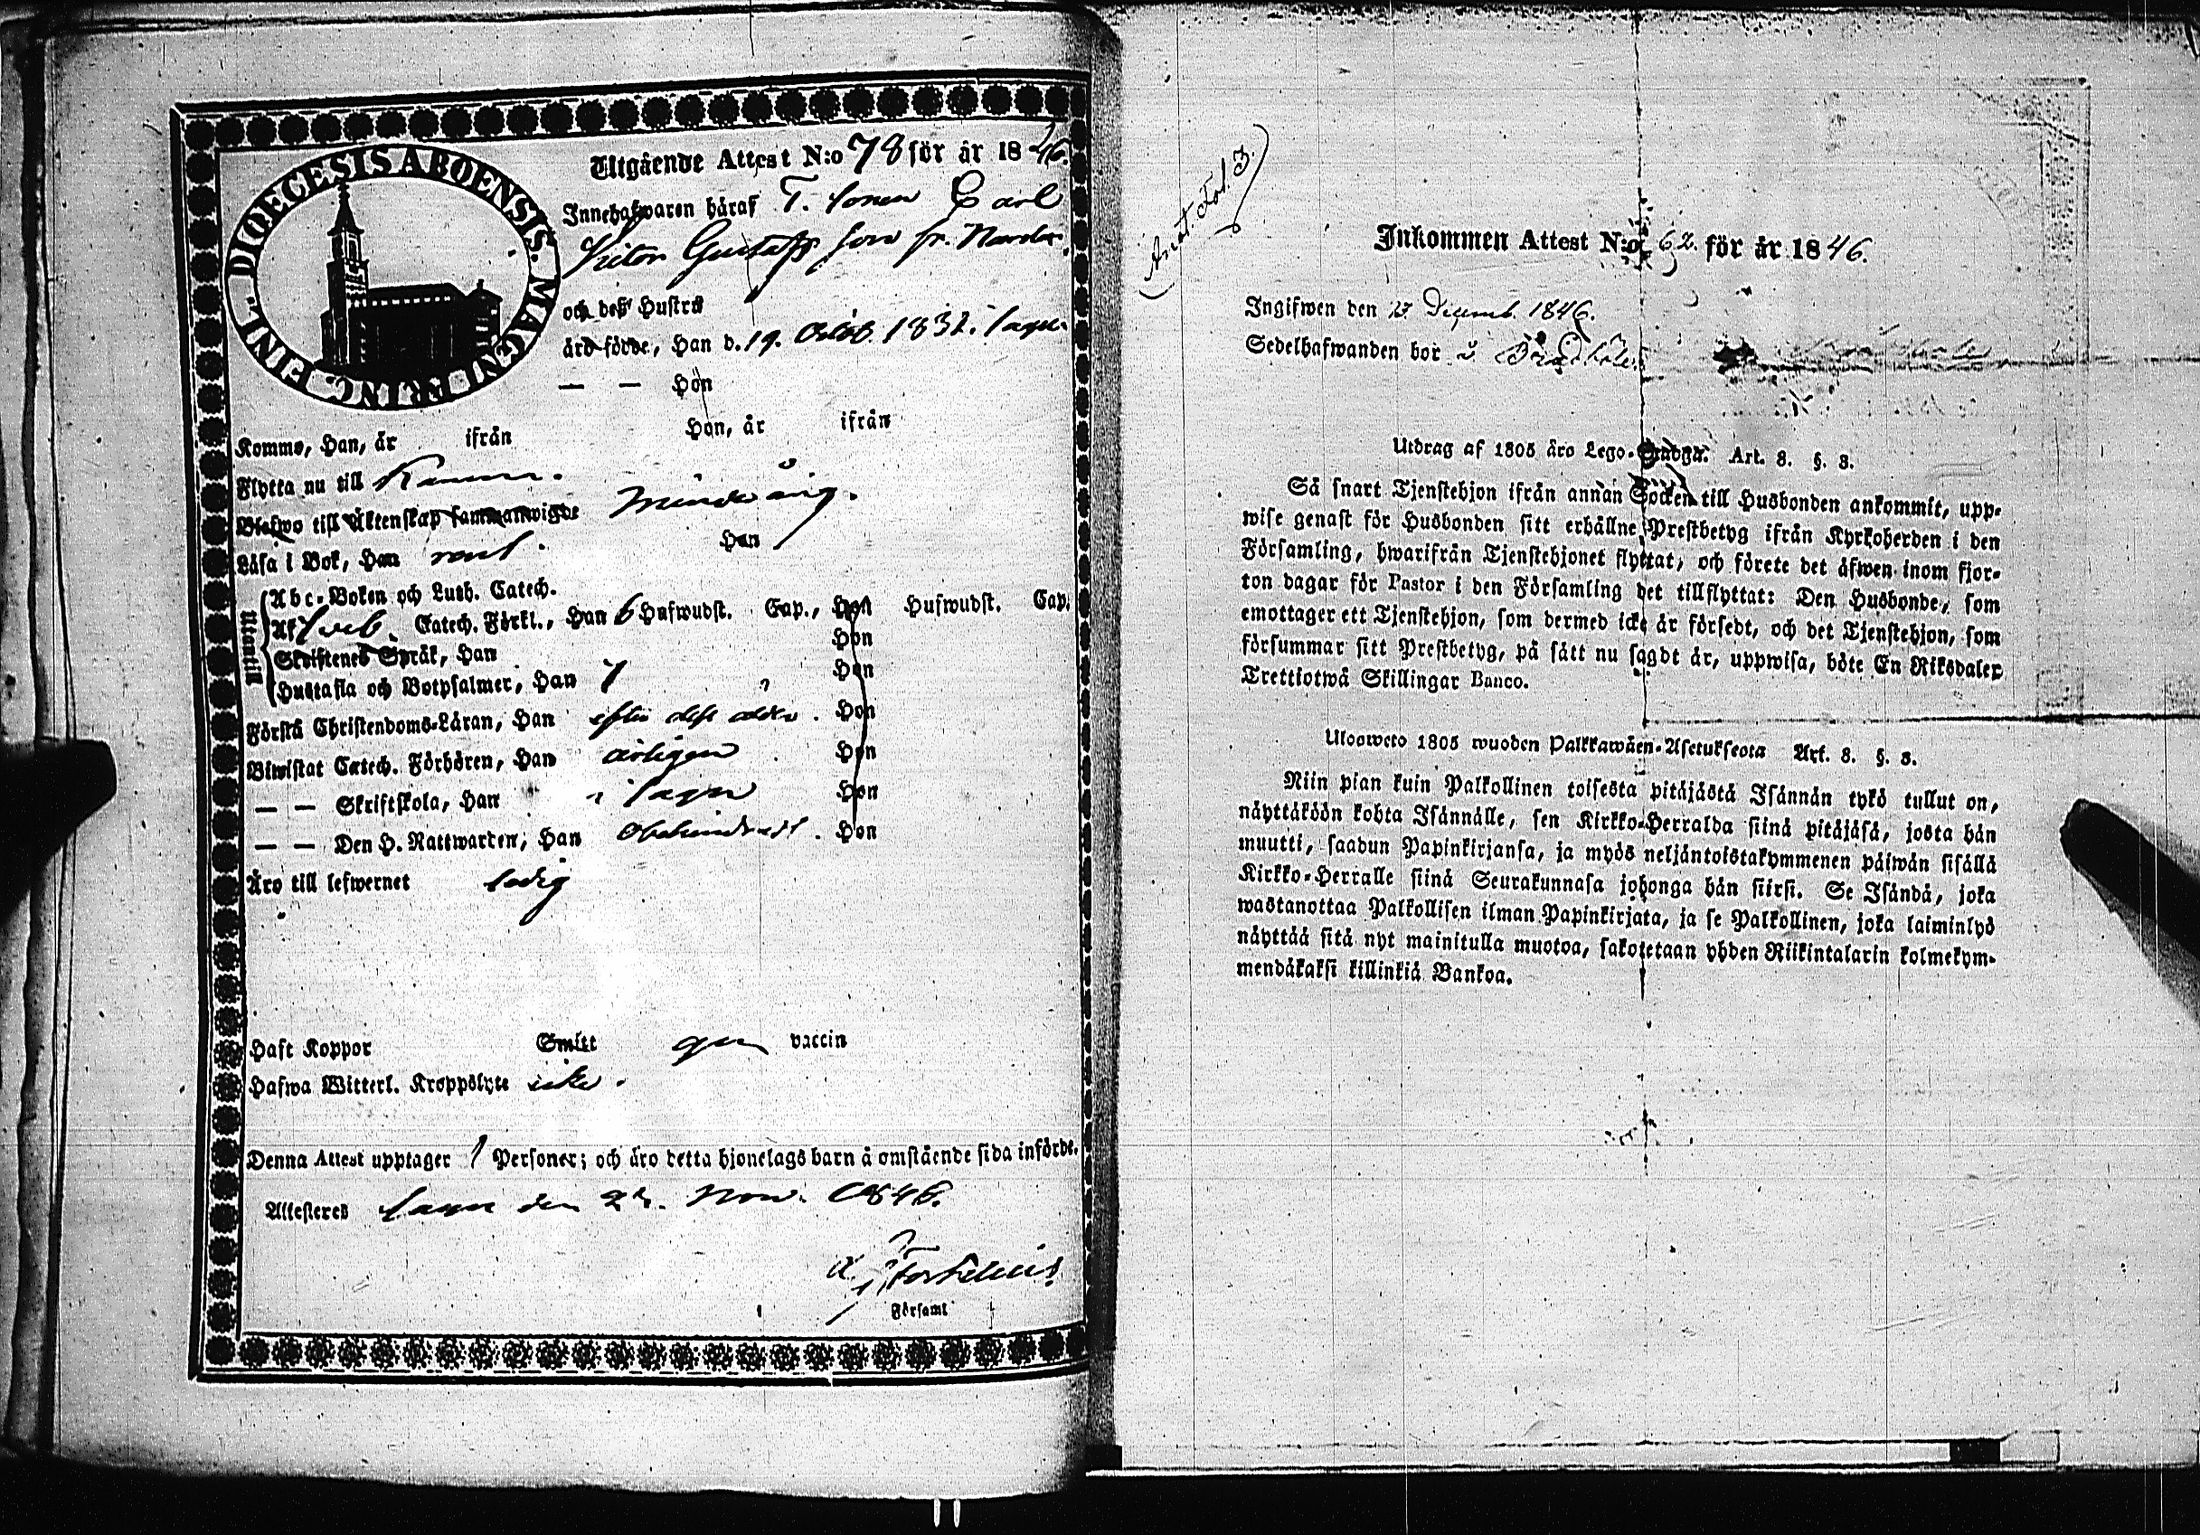 DIOECESIS ABOENSIS. MAGNI PRINC. FINL.
Utgående Attest N:o 78 för år 1846.
Innehafwaren häraf T. sonen Carl
Victor Gustafsson fr.
och deß Hustru
äro födde, Han d. 19. Octob. 1832. i Sagu.
— — Hon
Komme, Han, år ifrån Hon, år ifrån
Flytta nu till Kimm.
Blefwo till Äktenskap sammanwigde Minderårig.
Läsa i Bok, Han rent. Hon
Utantill
Abc-Boken och Luth. Catech.
Af Sveb. Catech. Förkl., Han 6 Hufwudst. Cap., Hon Hufwudst. Cap.
Skriftenes Språk, Han Hon
Hustafla och Botpsalmer, Han 7 Hon
Förstå Christendoms-Läran, Han efter dess ålder. Hon
Biwistat Catech. Förhören, Han årligen Hon
— — Skriftskola, Han i Sagu Hon
— — Den H. Nattwarden, Han Obehindradt. Hon
Äro till lefwernet sedig
Haft Koppor Smitt gen vaccin
Hafwa Witterl. Kroppslyte icke.
Denna Attest upptager 1 Personer; och äro detta hjonelags barn å omstående sida införde.
Attesteras Sagu den Nov. 1846.
Fortelius
Församl
(Anot. Fol. 3.)
Inkommen Attest N:o 62. för år 1846.
Ingifwen den 27 Decemb. 1846.
Sedelhafwanden bor å
Utdrag af 1805 års Lego-Stadga. Art. 8. §. 8.
Så snart Tjenstehjon ifrån annan Socken till Husbonden ankommit, upp-
wise genast för Husbonden sitt erhållne Prestbetyg ifrån Kyrkoherden i den
Församling, hwarifrån Tjenstehjonet flyttat, och förete det äfwen inom fjor-
ton dagar för Pastor i den Församling det tillflyttat: Den Husbonde, som
emottager ett Tjenstehjon, som dermed icke är försedt, och det Tjenstehjon, som
försummar sitt Prestbetyg, på sätt nu sagdt är, uppwisa, böte En Riksdaler
Trettiotwå Skillingar Banco.
Uloswето 1805 wuoden Palkkawäen-Asetuksesta Art. 8. §. 8.
Niin pian kuin Palkollinen toisesta pitäjästä Isännän tykö tullut on,
näyttäköön kohta Isännälle, sen Kirkko-Herralda siinä pitäjäsä, josta hän
muutti, saadun Papinkirjansa, ja myös neljäntoistakymmenen päiwän sisällä
Kirkko-Herralle siinä Seurakunnasa johonga hän siirsi. Se Isändä, joka
wastanottaa Palkollisen ilman Papinkirjata, ja se Palkollinen, joka laiminlyö
näyttää sitä nyt mainitulla muotoa, sakotetaan yhden Riikintalarin kolmekym-
mendäkaksi killinkiä Bankoa.